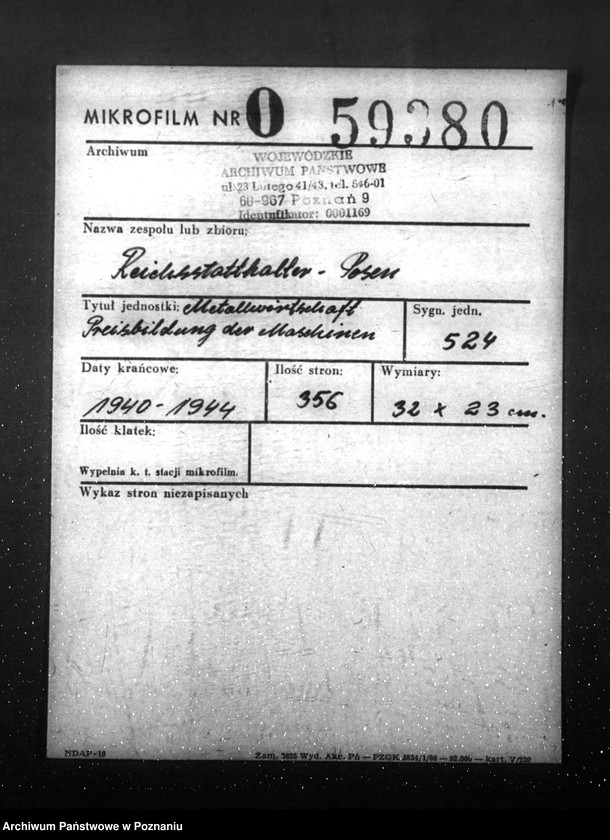 MIKROFILM NR O 59380
Archiwum
WOJEWÓDZKIE
ARCHIWUM PAŃSTWOWE
ul. 23 Lutego 41/43, tel. 546-01
60-967 Poznań 9
Identyfikator: 0001169
Nazwa zespołu lub zbioru:
Reichsstatthalter - Posen
Tytuł jednostki: Metallwirtschaft
Preisbildung der Maschinen
Sygn. jedn.
524
Daty krańcowe:
1940-1944
Ilość stron:
356
Wymiary:
32 x 23 cm.
Ilość klatek:
Wypełnia k. t. stacji mikrofilm.
Wykaz stron niezapisanych
NDAP-10
Zam. Wyd. Akc. PA — PZGK — kart.
Archiwum Państwowe w Poznaniu